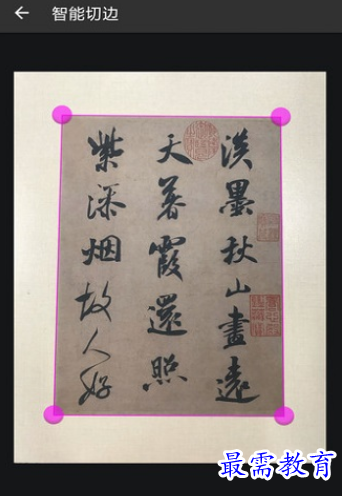 智能切边
淡墨秋山畫遠
天暮霞還照
紫添烟故人好
最需教育